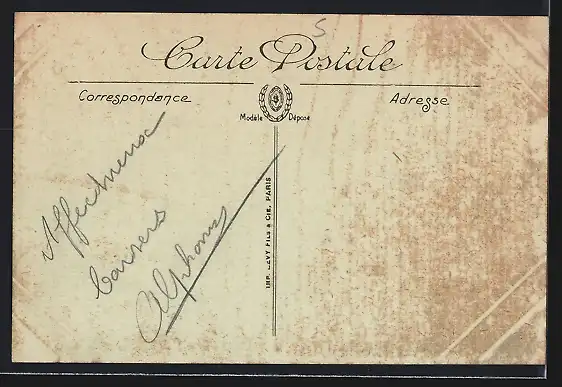 5
Carte Postale
Correspondance
Adresse
Modèle Déposé
Affectueux
baisers
Alphonse
IMP. LEVY FILS & CIE. PARIS